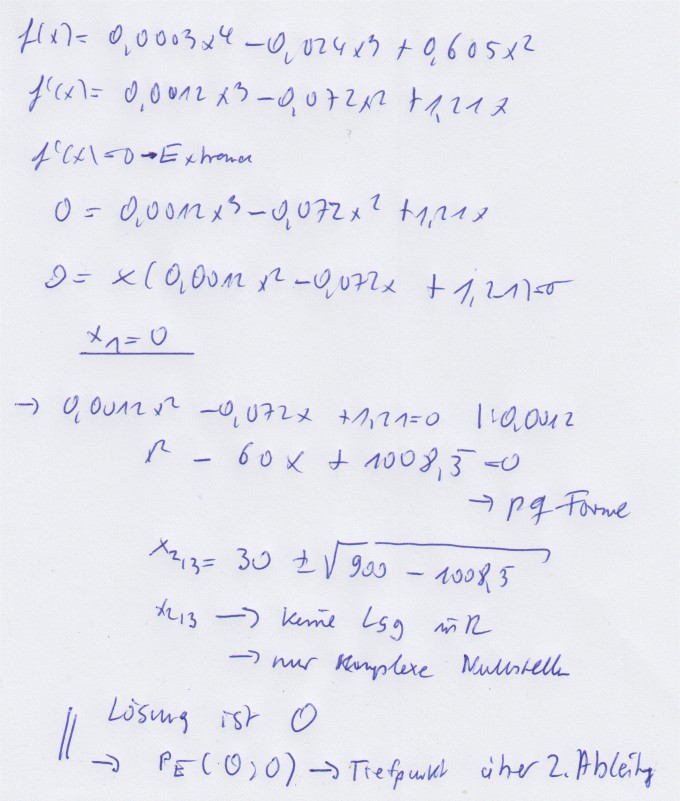 f(x) = 0,0003x⁴ - 0,024x³ + 0,605x²
f'(x) = 0,0012x³ - 0,072x² + 1,21x
f'(x) = 0 → Extrema
0 = 0,0012x³ - 0,072x² + 1,21x
0 = x(0,0012x² - 0,072x + 1,21) = 0
x₁ = 0
→ 0,0012x² - 0,072x + 1,21 = 0 |:0,0012
x² - 60x + 1008,3 = 0
→ pq-Forme
x₂,₃ = 30 ± √900 - 1008,3
x₂,₃ → keine Lsg in R
→ nur komplexe Nullstelle
|| Lösung ist 0
→ PE (0;0) → Tiefpunkt über 2. Ableitg